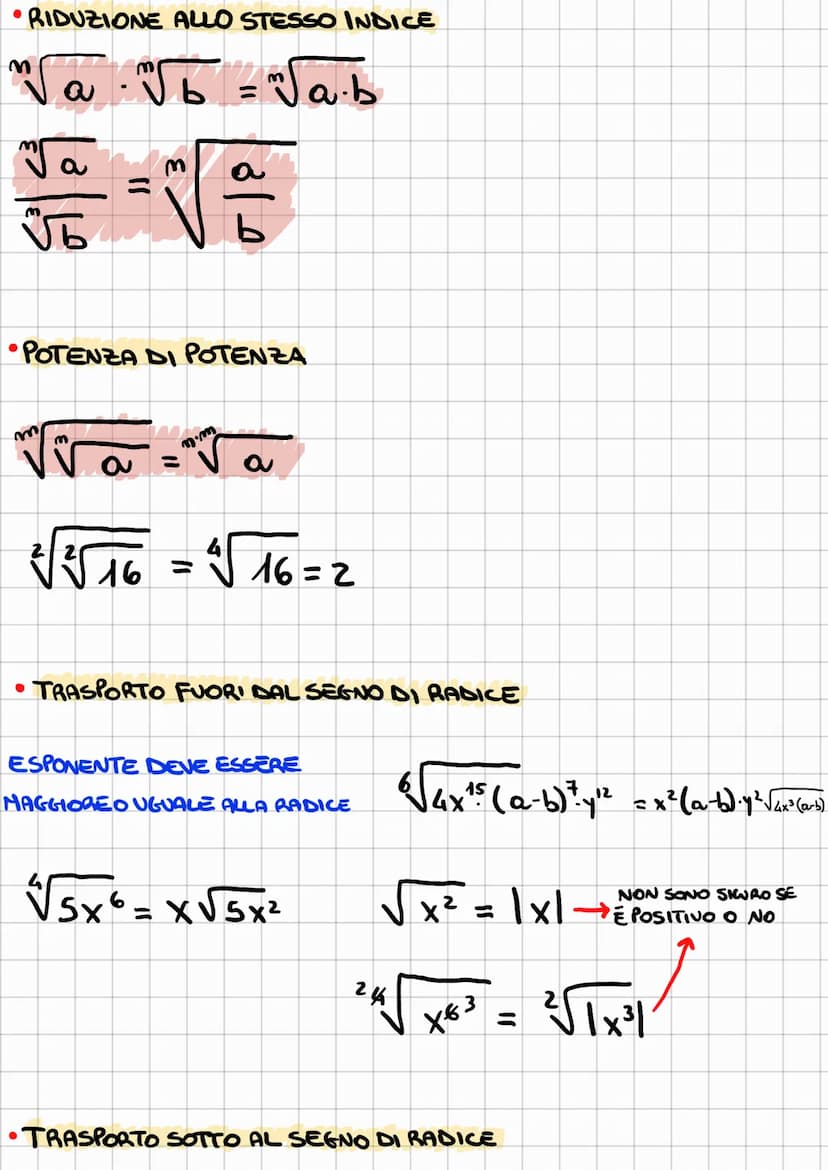 • RIDUZIONE ALLO STESSO INDICE
ⁿ√a · ⁿ√b = ⁿ√a·b
ⁿ√a / ⁿ√b = ⁿ√(a/b)
• POTENZA DI POTENZA
ᵐ√ⁿ√a = ⁿ·ᵐ√a
²√²√16 = ⁴√16 = 2
• TRASPORTO FUORI DAL SEGNO DI RADICE
ESPONENTE DEVE ESSERE
MAGGIORE O UGUALE ALLA RADICE
⁶√4x¹⁵·(a-b)⁷·y¹² = x²(a-b)·y²√4x³(a-b)
⁴√5x⁶ = x√5x²
√x² = |x| → NON SONO SICURO SE
È POSITIVO O NO
² ⁴√x⁶ ³ = ²√|x³|
• TRASPORTO SOTTO AL SEGNO DI RADICE